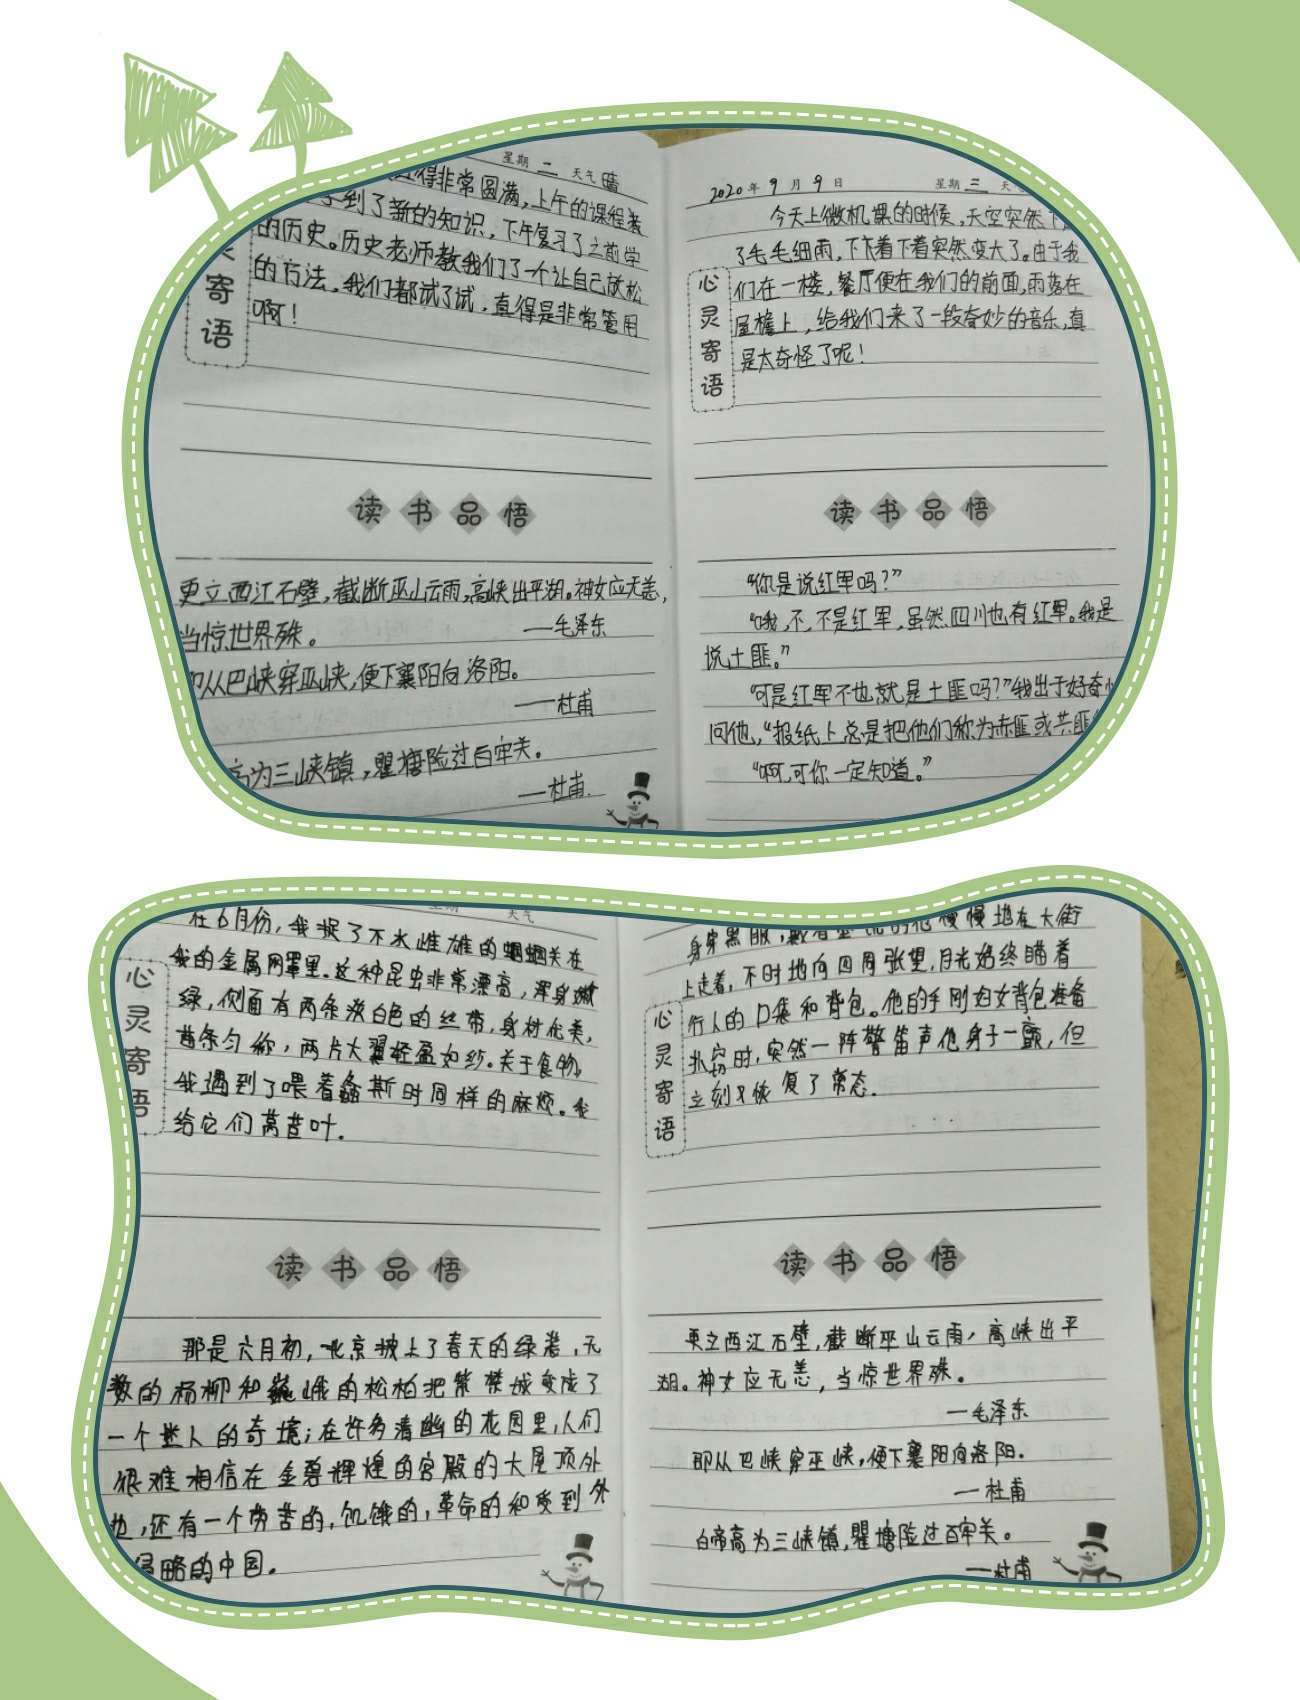 星期 二 天气 晴
得非常圆满,上午的课程我
到了新的知识,下午复习了之前学
的历史。历史老师教我们了一个让自己放松
的方法,我们都试了试,真得是非常管用
啊!
寄
语
读书品悟
更立西江石壁,截断巫山云雨,高峡出平湖。神女应无恙,
当惊世界殊。
——毛泽东
从巴峡穿巫峡,便下襄阳向洛阳。
——杜甫
高为三峡镇,瞿塘险过百牢关。
——杜甫
2020年9月9日 星期 三
今天上微机课的时候,天空突然下
了毛毛细雨,下着下着突然变大了。由于我
们在一楼,餐厅便在我们的前面,雨落在
屋檐上,给我们来了一段奇妙的音乐,真
是太奇怪了呢!
心
灵
寄
语
读书品悟
“你是说红军吗?”
“哦,不,不是红军,虽然四川也有红军。我是
说土匪。”
“可是红军不也就是土匪吗?”我出于好奇
问他,“报纸上总是把他们称为赤匪或共匪
“啊,可你一定知道。”
天气
在6月份,我捉了不少雌雄的蝈蝈关在
我的金属网罩里。这种昆虫非常漂亮,浑身嫩
绿,侧面有两条淡白色的丝带,身材优美,
苗条匀称,两片大翼轻盈如纱。关于食物,
我遇到了喂着螽斯时同样的麻烦。我
给它们莴苣叶.
心
灵
寄
语
读书品悟
那是六月初,北京披上了春天的绿装,无
数的杨柳和巍峨的松柏把紫禁城变成了
一个迷人的奇境;在许多清幽的花园里,人们
很难相信在金碧辉煌的宫殿的大屋顶外
边,还有一个劳苦的,饥饿的,革命的和受到外
侵略的中国。
身穿黑服,戴着 的他慢慢地在大街
上走着,不时地向四周张望,月光始终瞄着
行人的口袋和背包。他的手刚妇女背包准备
扒窃时,突然一阵警笛声他身子一颤,但
立刻又恢复了常态.
心
灵
寄
语
读书品悟
更立西江石壁,截断巫山云雨,高峡出平
湖。神女应无恙,当惊世界殊。
—毛泽东
即从巴峡穿巫峡,便下襄阳向洛阳.
—杜甫
白帝高为三峡镇,瞿塘险过百牢关。
—杜甫